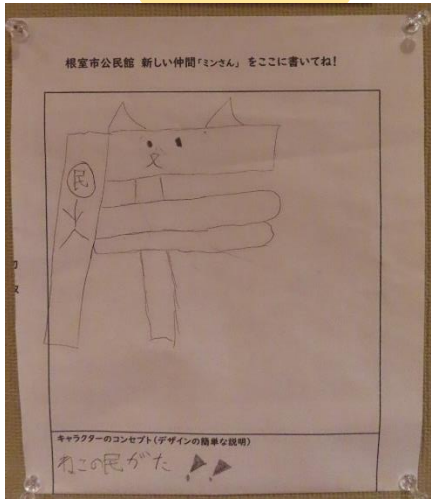 根室市公民館 新しい仲間「ミンさん」 をここに書いてね!
民
キャラクターのコンセプト(デザインの簡単な説明)
ねこの民がた!!